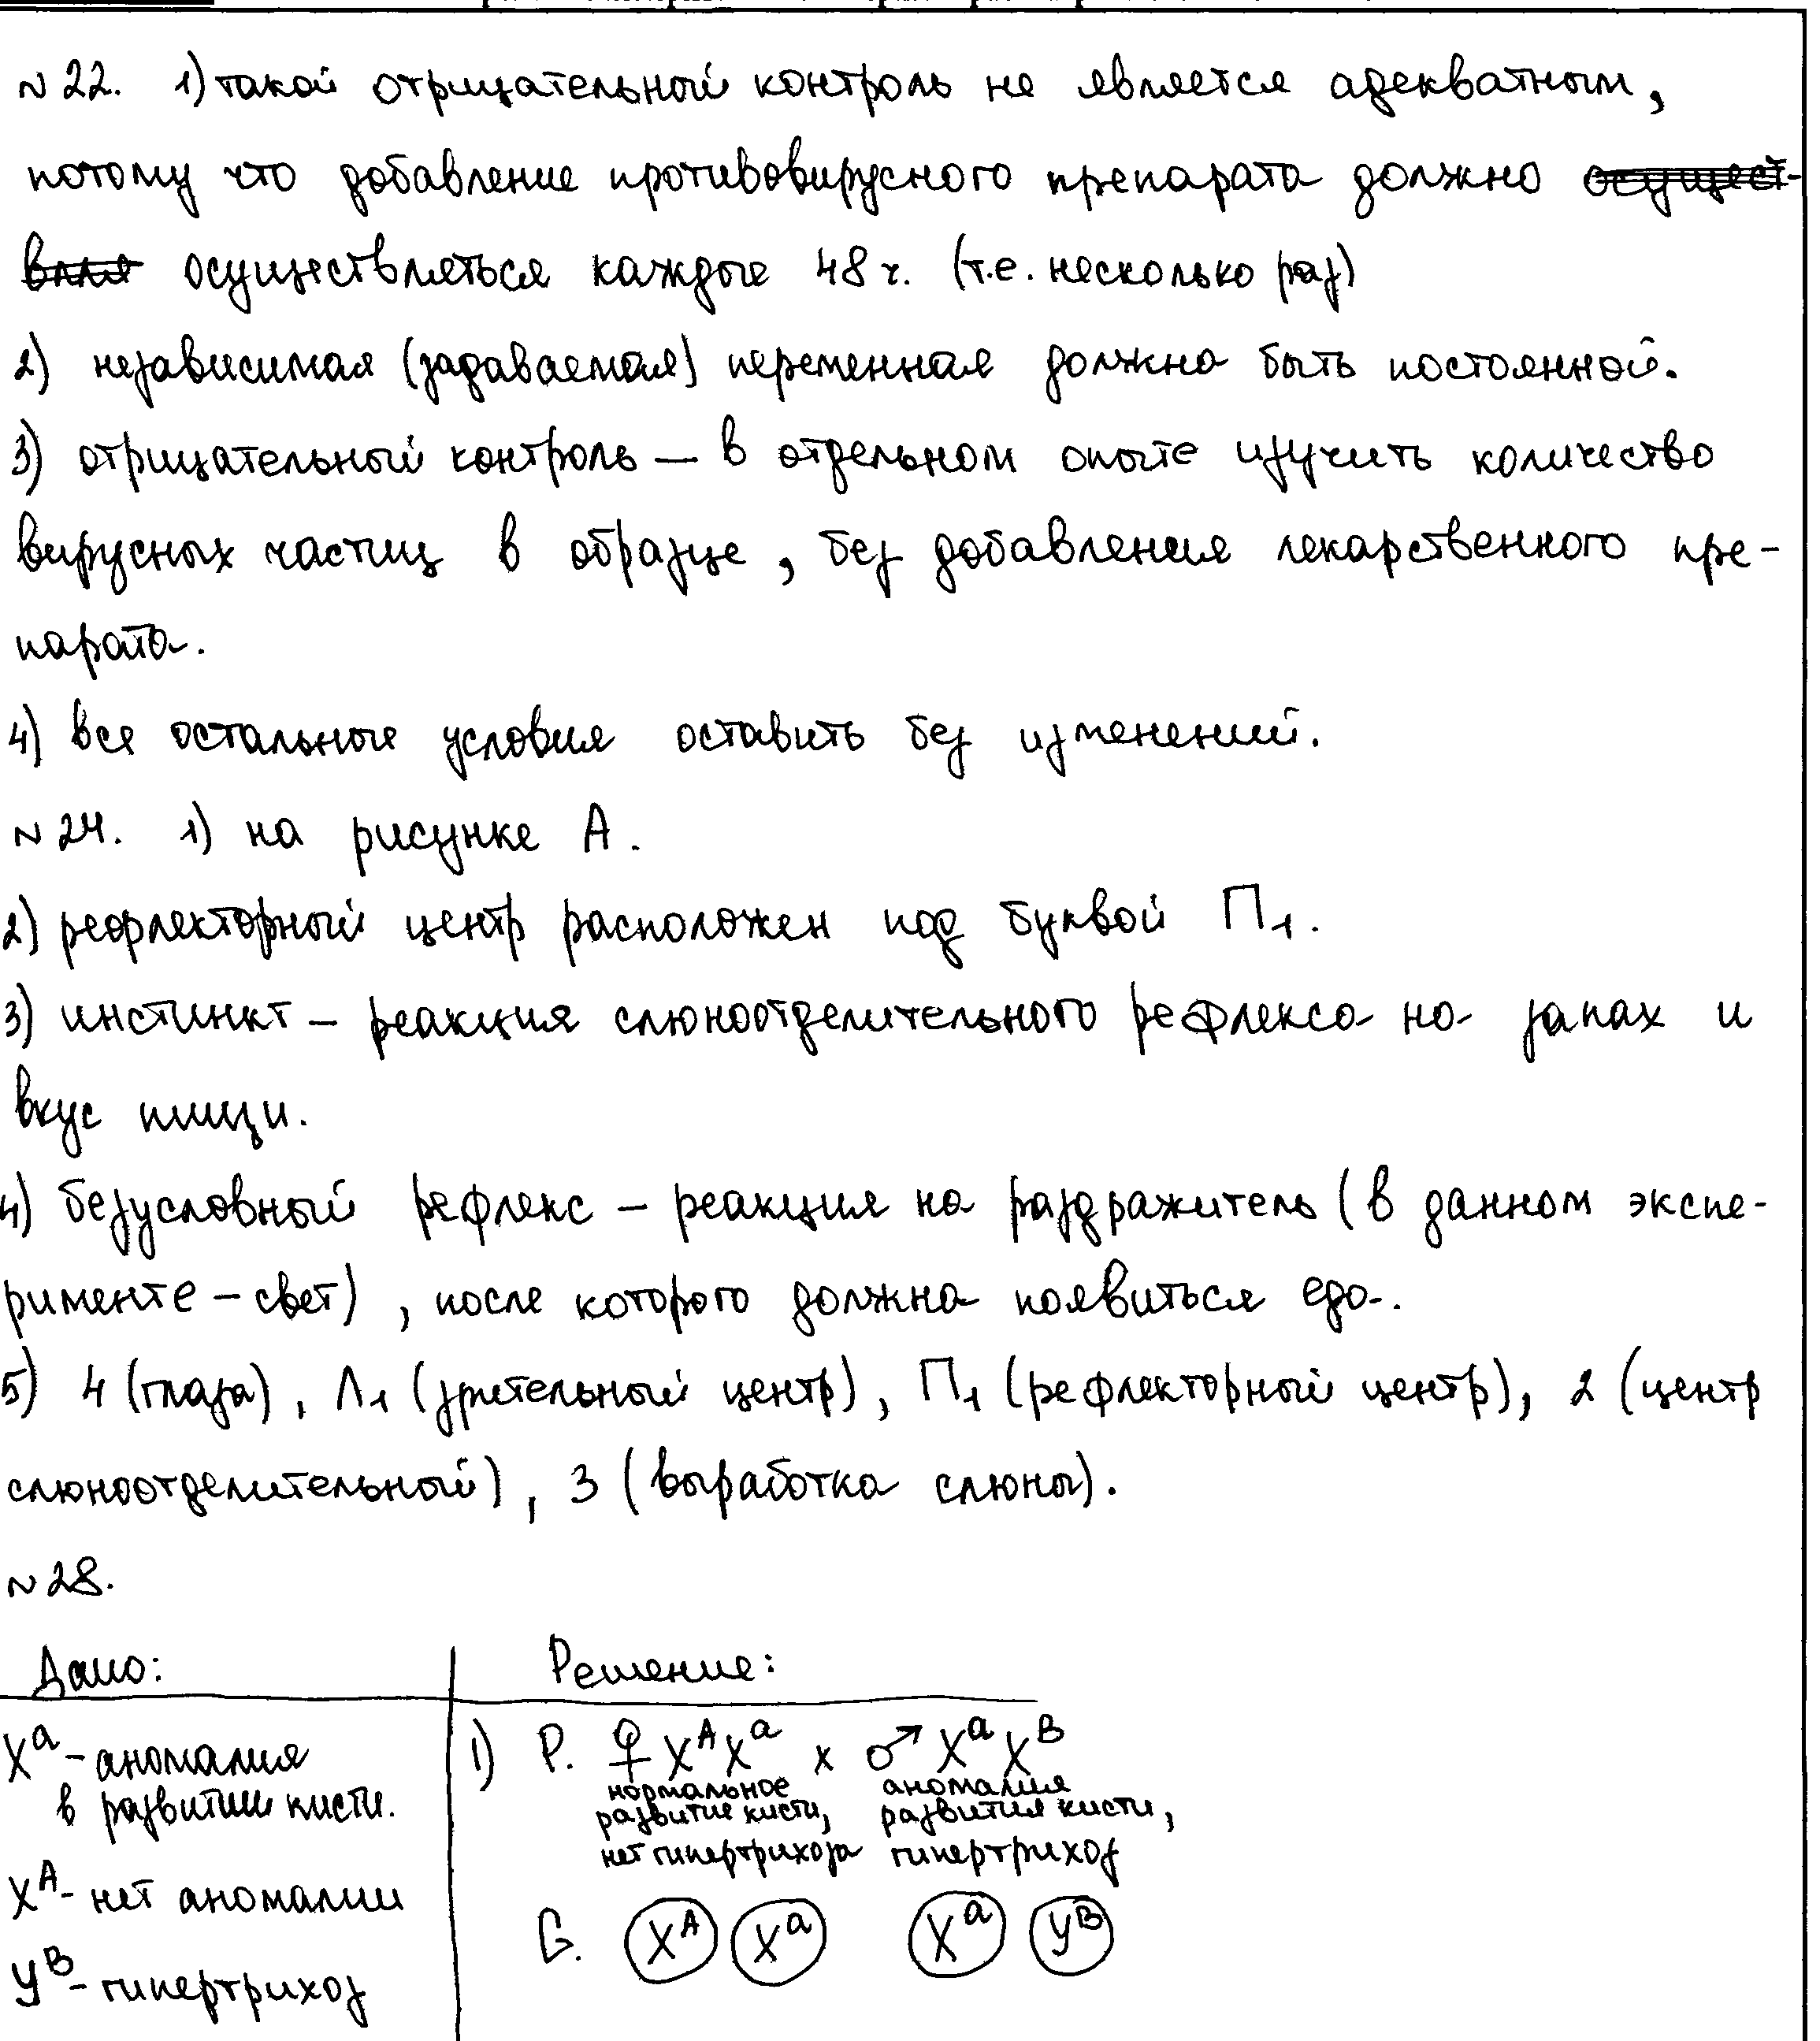 № 22. 1) такой отрицательный контроль не является адекватным,
потому что добавление противовирусного препарата должно осущест-
вля осуществляться каждые 48 ч. (т.е. несколько раз)
2) независимая (задаваемая) переменная должна быть постоянной.
3) отрицательный контроль — в отдельном опыте изучить количество
вирусных частиц в образце, без добавления лекарственного пре-
парата.
4) все остальные условия оставить без изменений.
№ 24. 1) на рисунке А.
2) рефлекторный центр расположен под буквой П₁.
3) инстинкт – реакция слюноотделительного рефлекса на запах и
вкус пищи.
4) безусловный рефлекс – реакция на раздражитель (в данном экспе-
рименте – свет), после которого должна появиться еда.
5) 4 (глаза), Л₁ (зрительный центр), П₁ (рефлекторный центр), 2 (центр
слюноотделительный), 3 (выработка слюны).
№ 28.
Дано: Решение:
Xᵃ - аномалия
в развитии кисти.
Xᴬ - нет аномалии
Yᴮ - гипертрихоз
1) P. ♀ XᴬXᵃ x ♂ XᵃXᴮ
нормальное аномалия
развитие кисти, развития кисти,
нет гипертрихоза гипертрихоз
G. Xᴬ Xᵃ Xᵃ Yᴮ